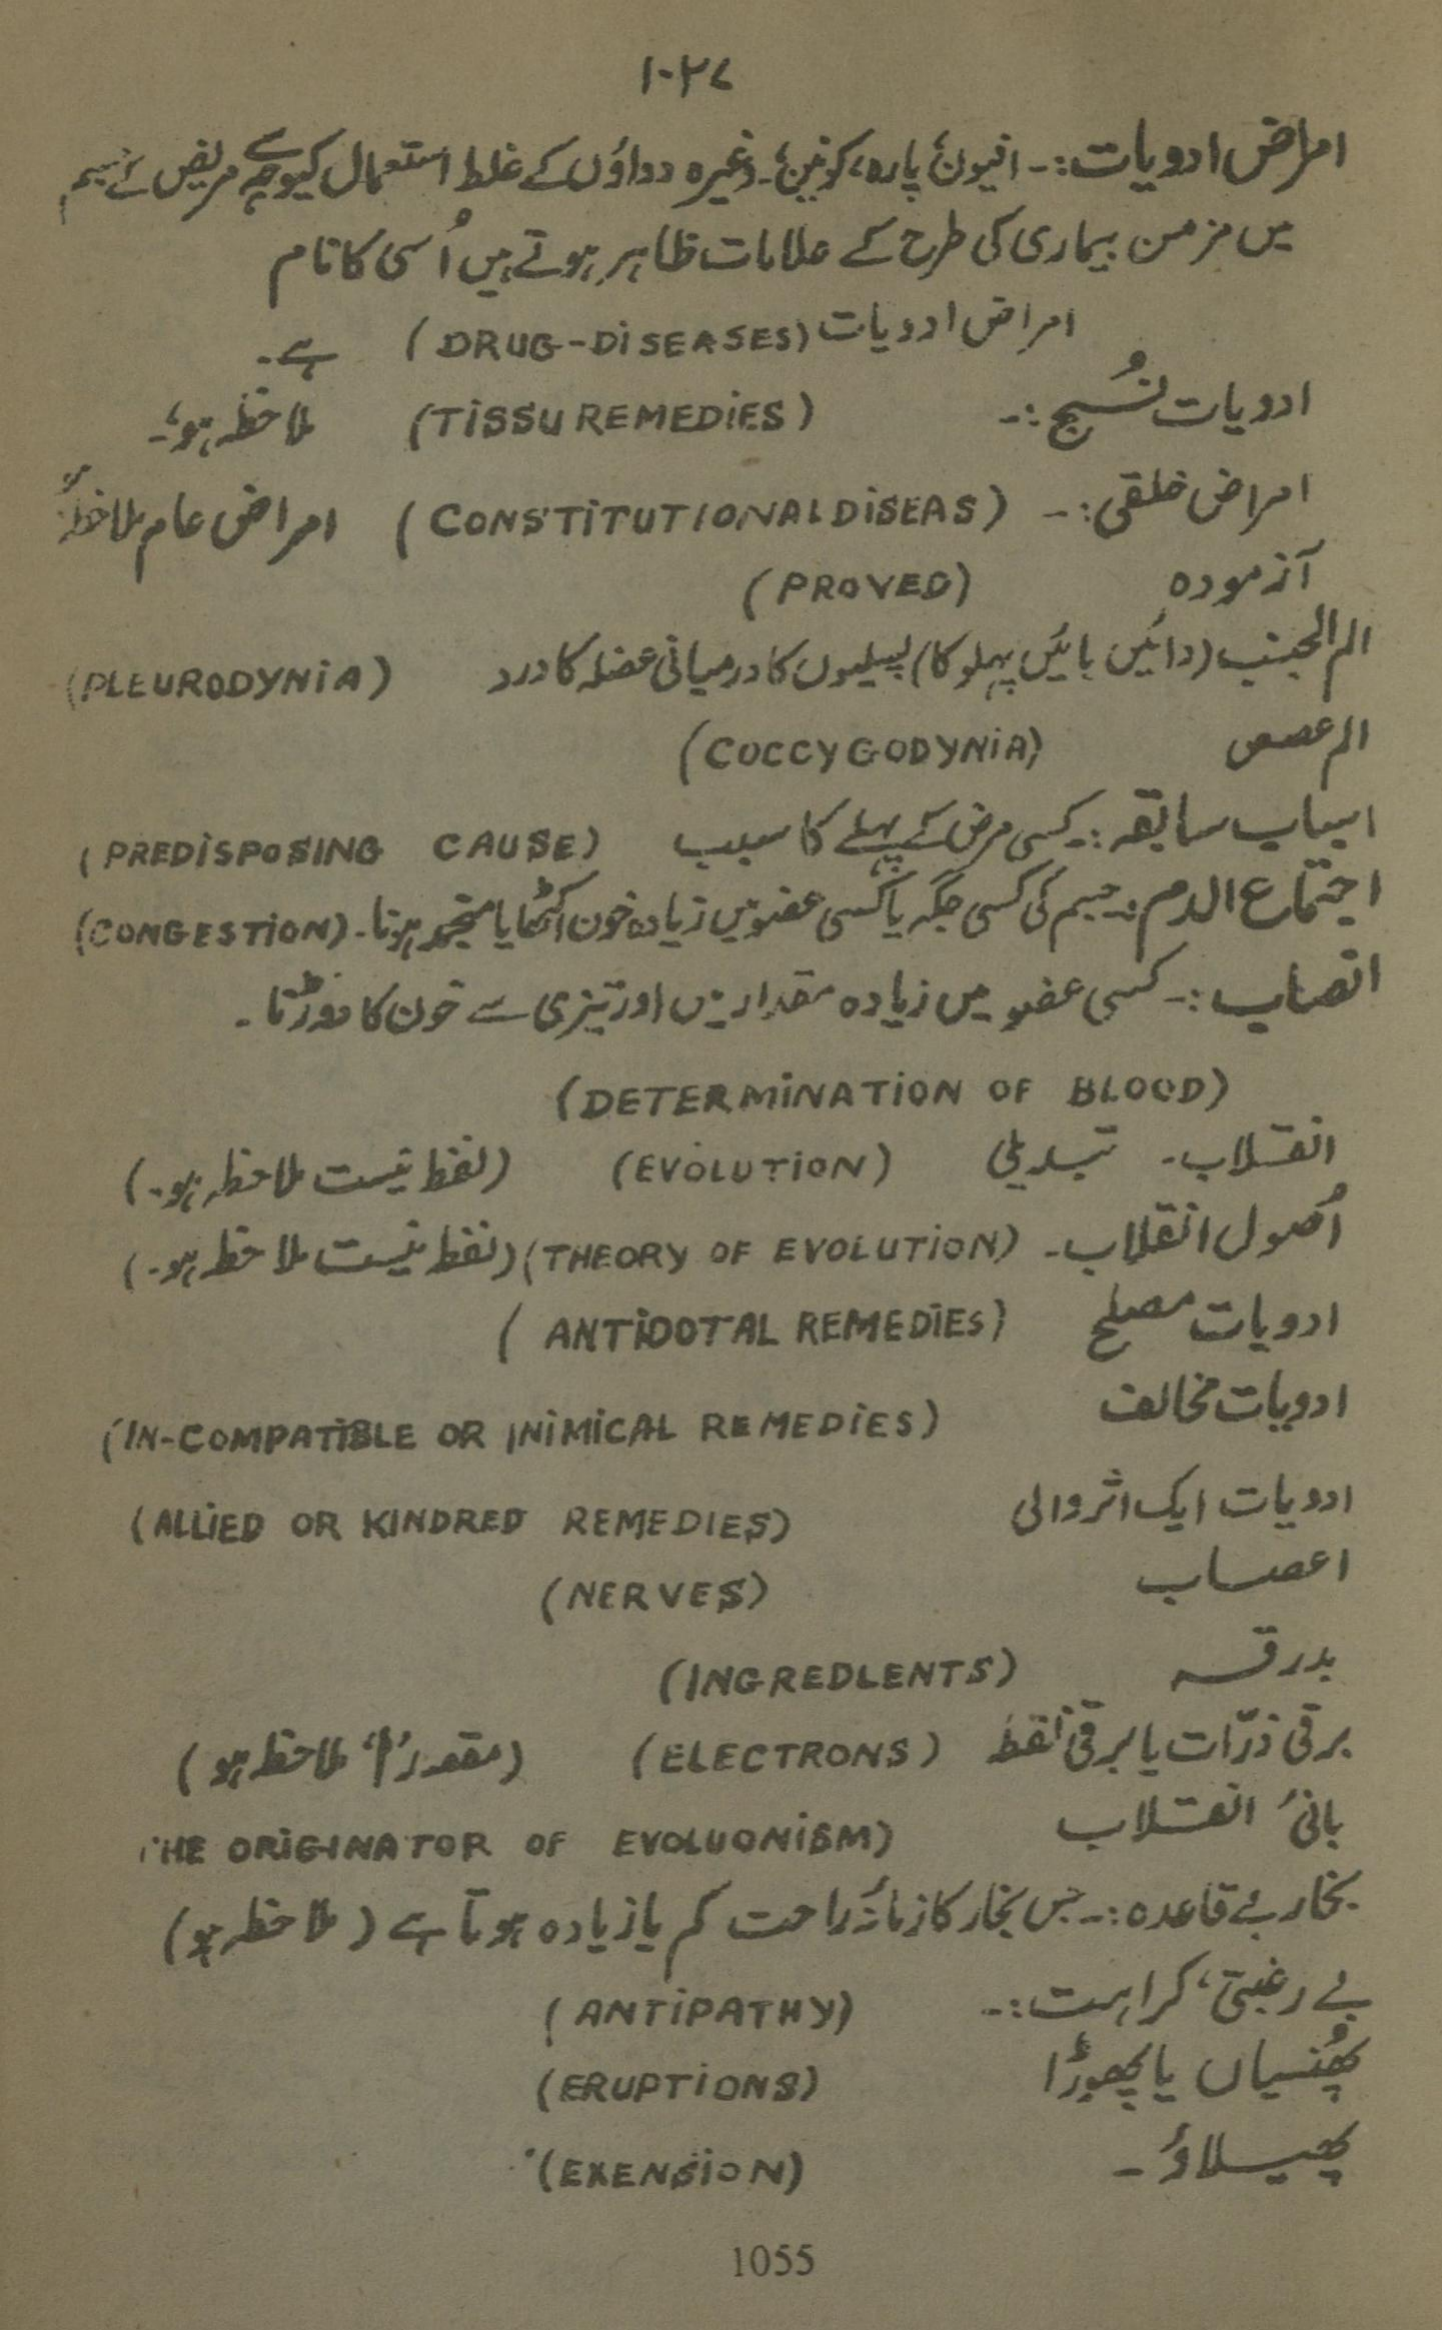 ۱۰۲۷
امراض ادویات:۔ افیون، پارہ، کونین، وغیرہ دواؤں کے غلط استعمال کیوجہ سے مریض کے جسم
میں مزمن بیماری کی طرح کے علامات ظاہر ہوتے ہیں اُسی کا نام
امراض ادویات (DRUG-DISEASES) ہے۔
ادویات نُسیج:۔ (TISSU REMEDIES) ملاحظہ ہو۔
امراض خلقی:۔ (CONSTITUTIONAL DISEAS) امراض عام ملاحظہ ہو
آزمودہ (PROVED)
الم الجنب (دائیں بائیں پہلو کا) پسلیوں کا درمیانی عضلہ کا درد (PLEURODYNIA)
الم عصعص (COCCYGODYNIA)
اسباب سابقہ:۔ کسی مرض کے پہلے کا سبب (PREDISPOSING CAUSE)
اجتماع الدم:۔ جسم کی کسی جگہ یا کسی عضو میں زیادہ خون اکٹھا یا منجمد ہونا۔ (CONGESTION)
انصباب:۔ کسی عضو میں زیادہ مقدار میں اور تیزی سے خون کا دوڑنا۔
(DETERMINATION OF BLOOD)
انقلاب۔ تبدیلی (EVOLUTION) (لفظ نیست ملاحظہ ہو۔)
اُصول انقلاب۔ (THEORY OF EVOLUTION) (لفظ نیست ملاحظہ ہو۔)
ادویات مصلح (ANTIDOTAL REMEDIES)
ادویات مخالف (IN-COMPATIBLE OR INIMICAL REMEDIES)
ادویات ایک اثر والی (ALLIED OR KINDRED REMEDIES)
اعصاب (NERVES)
بدرقہ (INGREDLENTS)
برقی ذرّات یا برقی نقط (ELECTRONS) ( ملاحظہ ہو)
بانیٔ انقلاب HE ORIGINATOR OF EVOLUONISM)
بخار بے قاعدہ:۔ جس بخار کا زمانۂ راحت کم یا زیادہ ہوتا ہے (ملاحظہ ہو)
بے رغبتی، کراہت:۔ (ANTIPATHY)
پھُنسیاں یا پھوڑا (ERUPTIONS)
پھیلاؤ۔ (EXENSION)
1055